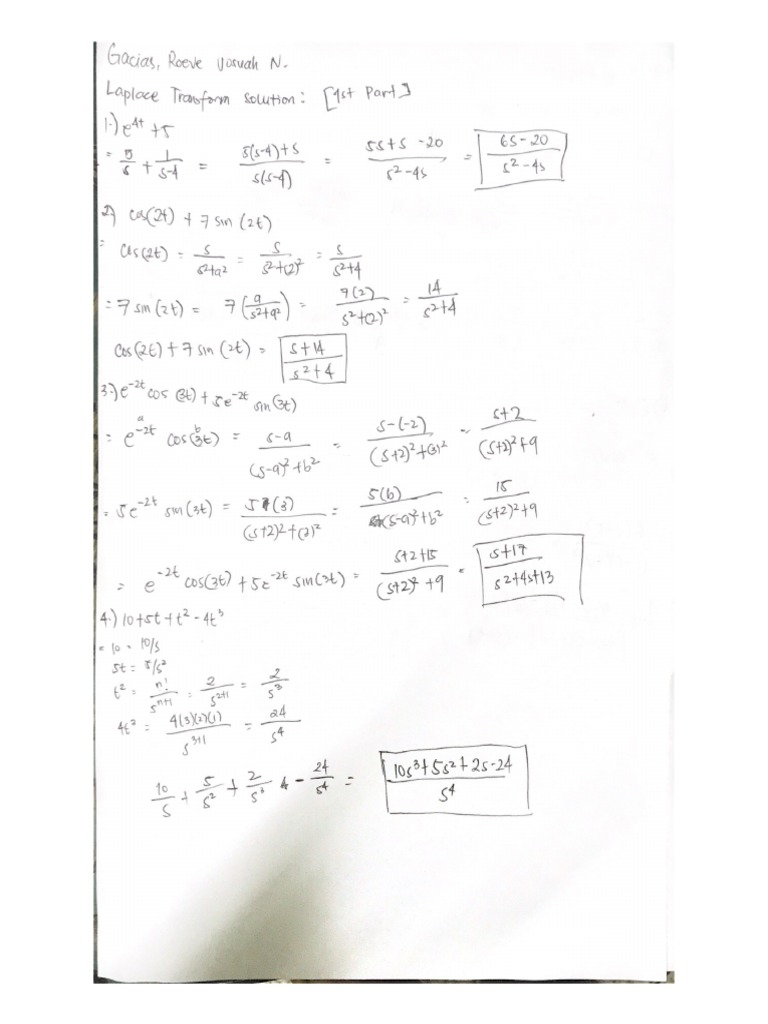 Gacias, Roeve Josuah N.
Laplace Transform solution: [1st Part]
1.) e^{4t} + 5
= 5/s + 1/(s-4) = (5(s-4)+s)/(s(s-4)) = (5s+s-20)/(s²-4s) = (6s-20)/(s²-4s)
2.) cos(2t) + 7 sin(2t)
= cos(2t) = s/(s²+a²) = s/(s²+(2)²) = s/(s²+4)
= 7 sin(2t) = 7(a/(s²+a²)) = 7(2)/(s²+(2)²) = 14/(s²+4)
cos(2t) + 7 sin(2t) = (s+14)/(s²+4)
3.) e^{-2t} cos(3t) + 5e^{-2t} sin(3t)
= e^{-2t} cos(3t) = (s-a)/((s-a)²+b²) = (s-(-2))/((s+2)²+(3)²) = (s+2)/((s+2)²+9)
= 5e^{-2t} sin(3t) = 5(3)/((s+2)²+(3)²) = 5(b)/((s-a)²+b²) = 15/((s+2)²+9)
= e^{-2t} cos(3t) + 5e^{-2t} sin(3t) = (s+2+15)/((s+2)²+9) = (s+17)/(s²+4s+13)
4.) 10+5t+t²-4t³
= 10 = 10/s
5t = 5/s²
t² = n!/s^{n+1} = 2/s^{2+1} = 2/s³
4t³ = 4(3)(2)(1)/s^{3+1} = 24/s⁴
10/s + 5/s² + 2/s³ - 24/s⁴ = (10s³+5s²+2s-24)/s⁴